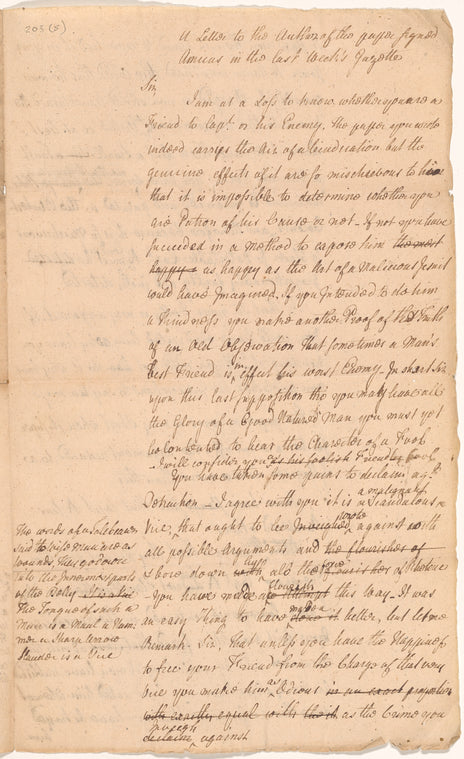 203 (5)
A Letter to the Author of the paper signed
Amicus in the last Week's Gazette
Sir
I am at a loss to know whether you are a
Friend to Capt. or his Enemy, the paper you wrote
indeed carrys the Air of a Vindication but the
genuine effects of it are so mischievous to him
that it is impossible to determine whether you
are Patron of his Cause or not - If not you have
succeeded in a Method to expose him the most
happy as happy as the Art of a Malicious Jesuit
could have Imagined. If you Intended to do him
a Kindness you make another Proof of the Truth
of an Old Observation that sometimes a Man's
best Friend is in effect his worst Enemy - In short Sir
upon this last supposition tho you may have all
the Glory of a Good Natured Man you must yet
be Contented to bear the Character of a Fool
I will consider you as his foolish Friend
You have taken some pains to declaim agt.
Detraction - I agree with you it is a Scandalous a malignant
Vice, that ought to be preached wrote against with
all possible Arguments and the flourishes of
& bore down with all the force of
- You have made a flourish this Way. It was
an easy Thing to have done it better, but let me
Remark Sir, that unless you have the Happiness
to free your Friend from the Charge of that very
vice you make him as Odious in an exact proportion
with equal with their as the Crime you
declaim against
The words of a
said the wise man are as
wounds, they go down
into the Innermost parts
of the Belly
The Tongue of such a
Man is a Maul a Ham-
mer a sharp Arrow
Slander is a Vice